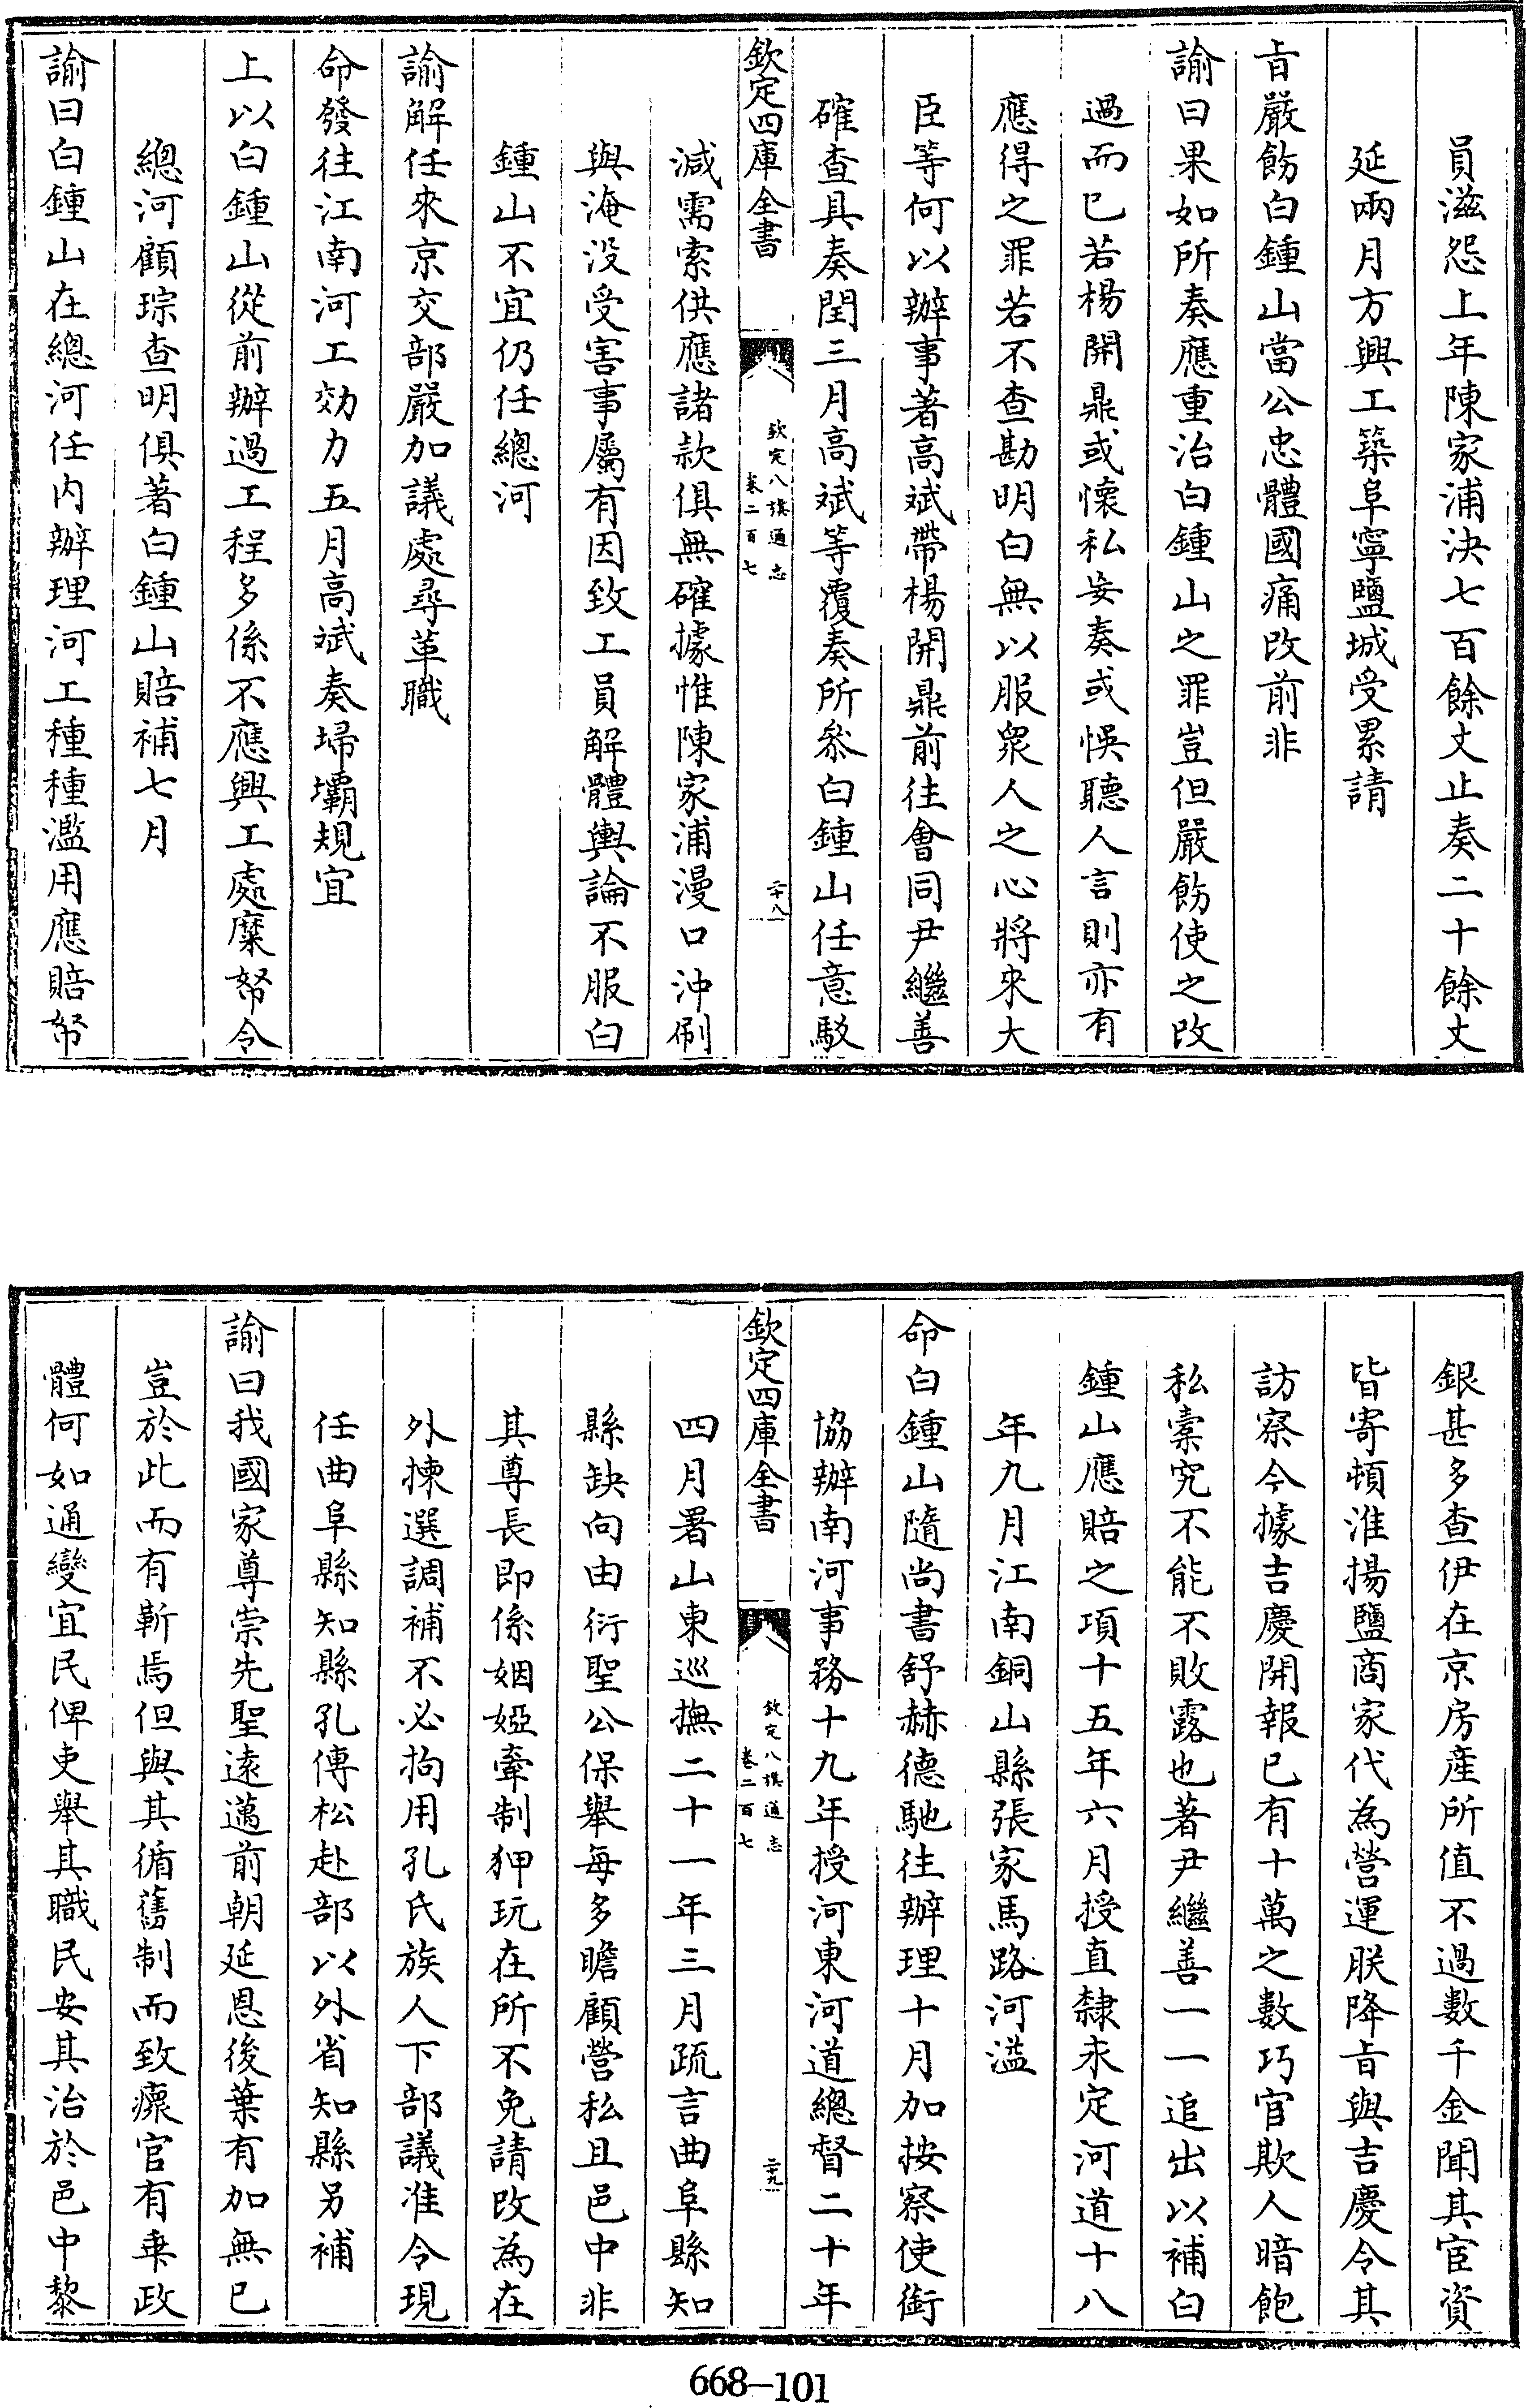 員滋怨上年陳家浦決七百餘丈止奏二十餘丈
延兩月方興工築阜寧鹽城受累請
旨嚴飭白鍾山當公忠體國痛改前非
諭曰果如所奏應重治白鍾山之罪豈但嚴飭使之改
過而已若楊開鼎或懷私妄奏或悞聽人言則亦有
應得之罪若不查勘明白無以服衆人之心將來大
臣等何以辦事著高斌帶楊開鼎前往會同尹繼善
確查具奏閏三月高斌等覆奏所叅白鍾山任意駁
欽定四庫全書
欽定八旗通志
卷二百七
二十八
減需索供應諸款俱無確據惟陳家浦漫口沖刷
與淹沒受害事屬有因致工員解體輿論不服白
鍾山不宜仍任總河
諭解任來京交部嚴加議處尋革職
命發往江南河工効力五月高斌奏埽壩規宜
上以白鍾山從前辦過工程多係不應興工處糜帑令
總河顧琮查明俱著白鍾山賠補七月
諭曰白鍾山在總河任內辦理河工種種濫用應賠帑
銀甚多查伊在京房產所值不過數千金聞其宦資
皆寄頓淮揚鹽商家代為營運朕降旨與吉慶令其
訪察今據吉慶開報已有十萬之數巧宦欺人暗飽
私橐究不能不敗露也著尹繼善一一追出以補白
鍾山應賠之項十五年六月授直隸永定河道十八
年九月江南銅山縣張家馬路河溢
命白鍾山隨尚書舒赫德馳往辦理十月加按察使銜
協辦南河事務十九年授河東河道總督二十年
欽定四庫全書
欽定八旗通志
卷二百七
二十九
四月署山東巡撫二十一年三月疏言曲阜縣知
縣缺向由衍聖公保舉每多瞻顧營私且邑中非
其尊長即係姻婭牽制狎玩在所不免請改為在
外揀選調補不必拘用孔氏族人下部議准令現
任曲阜縣知縣孔傳松赴部以外省知縣另補
諭曰我國家尊崇先聖遠邁前朝延恩後葉有加無已
豈於此而有靳焉但與其循舊制而致瘝官有乖政
體何如通變宜民俾吏舉其職民安其治於邑中黎
668-101